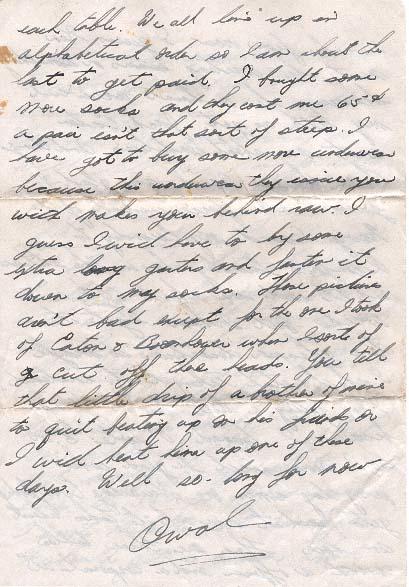 each table. We all line up in
alphabetical order so I am about the
last to get paid. I bought some
more socks and they cost me 65¢
a pair isn't that sort of steep. I
have got to buy some more underwear
because this underwear they issue you
with makes you behind raw. I
guess I will have to by some
extra long garters and fasten it
down to my socks. Those pictures
aren't bad except for the one I took
of Eaton & Eisenhower when I sorte of
cut off the heads. You tell
that little drip of a brother of mine
to quit beating up on his or
I will beat him up one of these
days. Well so-long for now
Owal